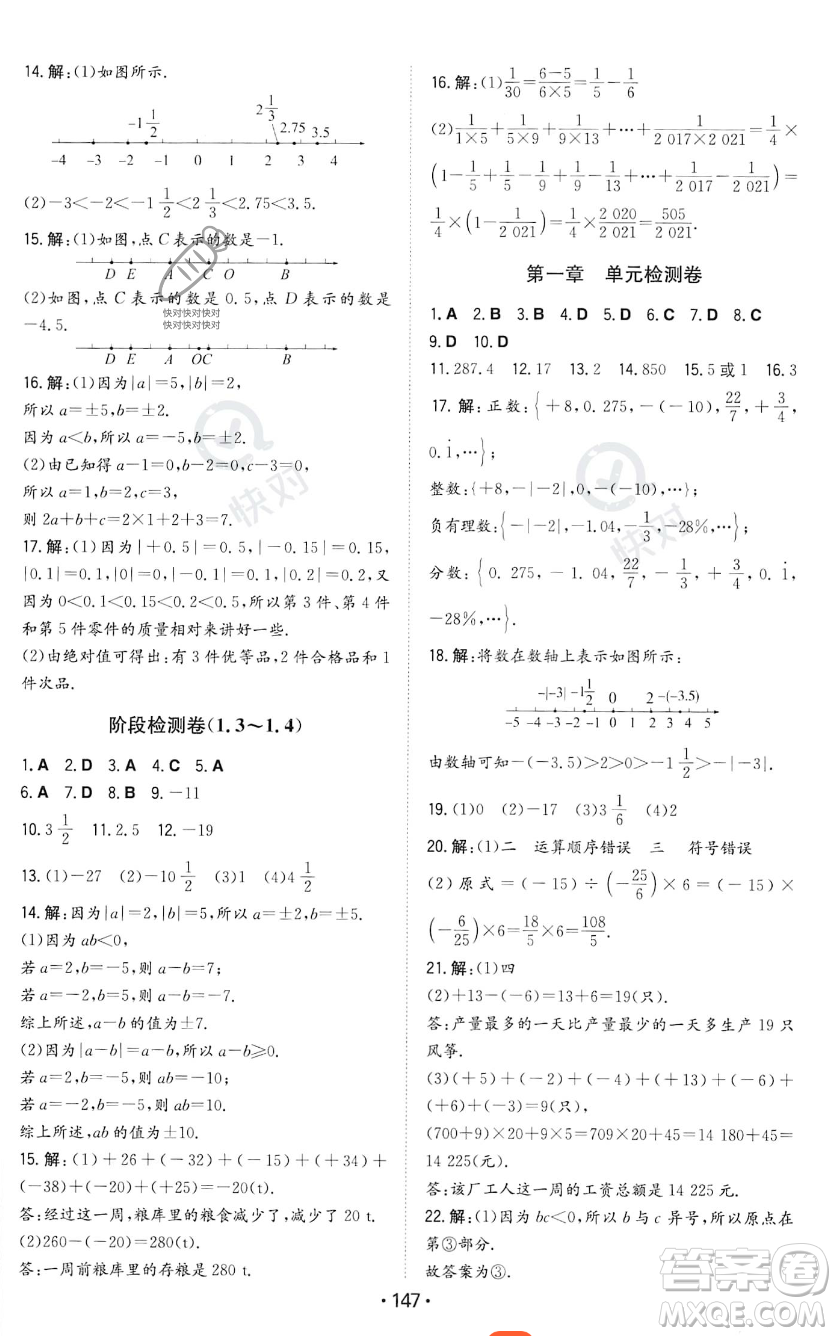 14.解:(1)如图所示.
-1 1/2  2 1/3  2.75  3.5
-4 -3 -2 -1 0 1 2 3 4
(2)-3<-2<-1 1/2<2 1/3<2.75<3.5.
15.解:(1)如图,点C表示的数是-1.
D E A C O B
(2)如图,点C表示的数是0.5,点D表示的数是
-4.5.
快对快对快对
快对快对快对
D E A OC B
16.解:(1)因为|a|=5,|b|=2,
所以a=±5,b=±2.
因为a<b,所以a=-5,b=±2.
(2)由已知得a-1=0,b-2=0,c-3=0,
所以a=1,b=2,c=3.
则2a+b+c=2×1+2+3=7.
17.解:(1)因为|+0.5|=0.5,|-0.15|=0.15,
|0.1|=0.1,|0|=0,|-0.1|=0.1,|0.2|=0.2,又
因为0<0.1<0.15<0.2<0.5,所以第3件、第4件
和第5件零件的质量相对来讲好一些.
(2)由绝对值可得出:有3件优等品,2件合格品和1
件次品.
阶段检测卷(1.3~1.4)
1.A 2.D 3.A 4.C 5.A
6.A 7.D 8.B 9.-11
10.3 1/2 11.2.5 12.-19
13.(1)-27 (2)-10 1/2 (3)1 (4)4 1/2
14.解:因为|a|=2,|b|=5,所以a=±2,b=±5.
(1)因为ab<0,
若a=2,b=-5,则a-b=7;
若a=-2,b=5,则a-b=-7.
综上所述,a-b的值为±7.
(2)因为|a-b|=a-b,所以a-b⩾0.
若a=2,b=-5,则ab=-10;
若a=-2,b=-5,则ab=10.
综上所述,ab的值为±10.
15.解:(1)+26+(-32)+(-15)+(+34)+
(-38)+(-20)+(+25)=-20(t).
答:经过这一周,粮库里的粮食减少了,减少了20 t.
(2)260-(-20)=280(t).
答:一周前粮库里的存粮是280 t.
16.解:(1)1/30=(6-5)/(6×5)=1/5-1/6
(2)1/(1×5)+1/(5×9)+1/(9×13)+…+1/(2 017×2 021)=1/4×
(1-1/5+1/5-1/9+1/9-1/13+…+1/2 017-1/2 021)=
1/4×(1-1/2 021)=1/4×2 020/2 021=505/2 021.
第一章 单元检测卷
1.A 2.B 3.B 4.D 5.D 6.C 7.D 8.C
9.D 10.D
11.287.4 12.17 13.2 14.850 15.5或1 16.3
17.解:正数:{+8,0.275,-(-10),22/7,+3/4,
0.1̇,…};
整数:{+8,-|-2|,0,-(-10),…};
负有理数:{-|-2|,-1.04,-1/3,-28%,…};
分数:{0.275,-1.04,22/7,-1/3,+3/4,0.1̇,
-28%,…}.
18.解:将数在数轴上表示如图所示:
-|-3| -1 1/2 0 2 -(-3.5)
-5 -4 -3 -2 -1 0 1 2 3 4 5
由数轴可知-(-3.5)>2>0>-1 1/2>-|-3|.
19.(1)2 (2)-17 (3)3 1/6 (4)2
20.解:(1)二 运算顺序错误 三 符号错误
(2)原式=(-15)÷(-25/6)×6=(-15)×
(-6/25)×6=18/5×6=108/5.
21.解:(1)四
(2)+13-(-6)=13+6=19(只).
答:产量最多的一天比产量最少的一天多生产19只
风筝.
(3)(+5)+(-2)+(-4)+(+13)+(-6)+
(+6)+(-3)=9(只),
(700+9)×20+9×5=709×20+45=14 180+45=
14 225(元).
答:该厂工人这一周的工资总额是14 225元.
22.解:(1)因为bc<0,所以b与c异号,所以原点在
第③部分.
故答案为③.
·147·
快对
快对
答案圈
MXQE.COM